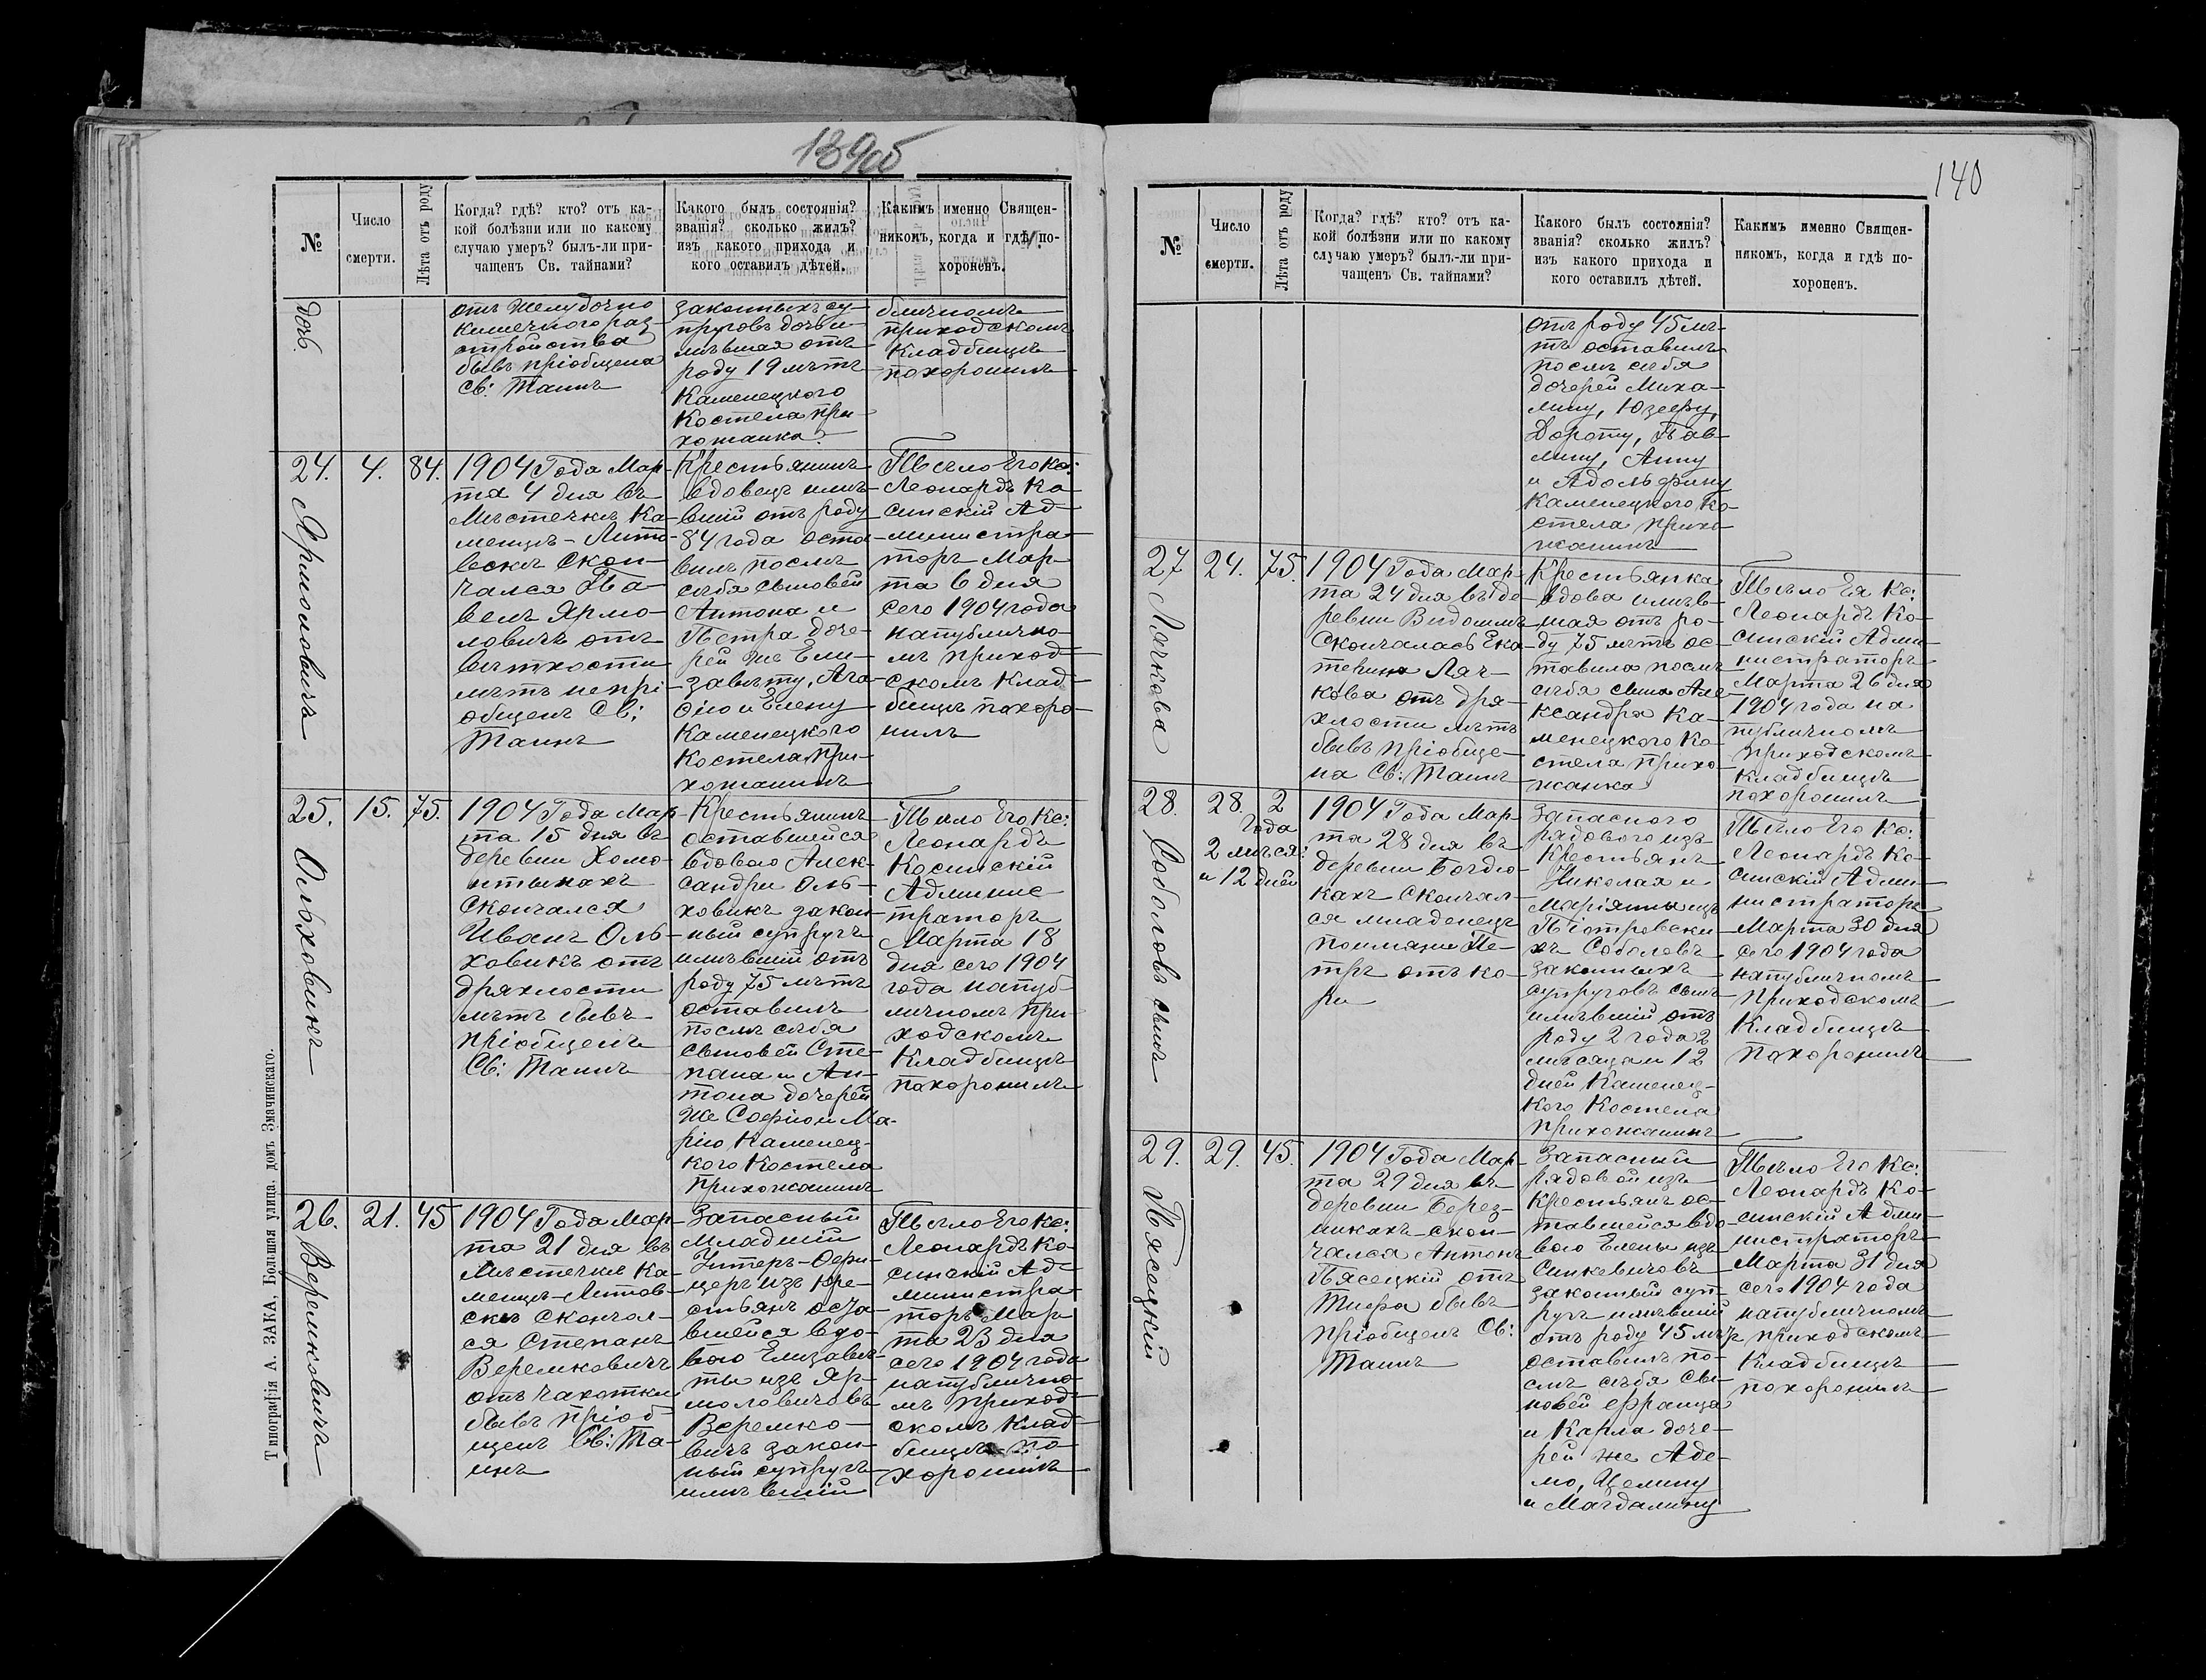 139об
№
Число
смерти.
Лѣта отъ роду
Когда? гдѣ? кто? отъ ка-
кой болѣзни или по какому
случаю умеръ? былъ-ли при-
чащенъ Св. тайнами?
Какого былъ состоянія?
званія? сколько жилъ?
изъ какого прихода и
кого оставилъ дѣтей.
Какимъ именно Священ-
никомъ, когда и гдѣ по-
хороненъ.
дочь.
отъ желудочно
кишечного раз-
стройства
бывъ пріобщена
Св: Таинъ
законныхъ су-
пруговъ дочь и-
мѣвшая отъ
роду 19 лѣтъ
Каменецкого
Костела при-
хожанка.
бличномъ
приходскомъ
Кладбищѣ
похоронилъ
24.
Ярмоловичъ
4.
84.
1904 Года Мар-
та 4 дня въ
Мѣстечкѣ Ка-
менцѣ-Лито-
вскѣ Скон-
чался Па-
велъ Ярмо-
ловичъ отъ
ветхости
лѣтъ непрі-
общенъ Св:
Таинъ
Крестьянинъ
вдовецъ имѣ-
вшій отъ роду
84 года оста-
вилъ послѣ
себя сыновей
Антона и
Петра доче-
рей же Ели-
завету, Ага-
фію и Елену
Каменецкого
Костела при-
хожанинъ
Тѣло Его Кс:
Леонардъ Ко-
синскій Ад-
министра-
торъ Мар-
та 6 дня
сего 1904 года
напублично-
мъ приход-
скомъ клад-
бищѣ похоро-
нилъ
25.
Ольховикъ
15.
75.
1904 Года Мар-
та 15 дня въ
деревни Хомо-
нтынахъ
Скончался
Иванъ Оль-
ховикъ отъ
дряхлости
лѣтъ бывъ
пріобщенъ
Св: Таинъ
Крестьянинъ
оставшейся
вдовою Алек-
сандри Оль-
ховикъ закон-
ный супругъ
имѣвшій отъ
роду 75 лѣтъ
оставилъ
послѣ себя
сыновей Сте-
пана и Ан-
тона дочерей
же Софію и Ма-
рію Каменец-
кого Костела
Прихожанинъ
Тѣло Его Кс:
Леонардъ
Косинскій
Админис
траторъ
Марта 18
дня сего 1904
года напуб-
личномъ при-
ходскомъ
Кладбищѣ
похоронилъ
26.
Веремковичъ
21.
45
1904 Года Мар-
та 21 дня въ
Мѣстечкѣ Ка-
менцѣ-Литов-
скѣ Скончал-
ся Степанъ
Веремковичъ
отъ чахотки
бывъ пріоб-
щенъ Св: Та-
инъ
Запасный
Младшій
Унтеръ-Офи-
церъ изъ кре-
стьянъ оста-
вшейся вдо-
вою Елизаве-
ты изъ Яр-
моловичовъ
Веремко-
вичъ закон-
ный супругъ
имѣвшій
Тѣло Его Кс:
Леонардъ Ко-
синскій Ад-
министра-
торъ Мар-
та 23 дня
сего 1904 года
напублично-
мъ приход-
скомъ клад-
бищѣ по-
хоронилъ
Типографія А. ЗАКА, Большая улица, домъ Змачинскаго.
140
№
Число
смерти.
Лѣта отъ роду
Когда? гдѣ? кто? отъ ка-
кой болѣзни или по какому
случаю умеръ? былъ-ли при-
чащенъ Св. тайнами?
Какого былъ состоянія?
званія? сколько жилъ?
изъ какого прихода и
кого оставилъ дѣтей.
Какимъ именно Священ-
никомъ, когда и гдѣ по-
хороненъ.
отъ роду 45 лѣ-
тъ оставилъ
послѣ себя
дочерей Миха-
лину, Юзефу,
Дороту, Пав-
лину, Анну
и Адольфину
Каменецкого Ко-
стела прихо-
жанинъ
27
Лочкова
24.
75.
1904 Года Мар-
та 24 дня въ де-
ревни Видомлѣ
Скончалась Ека-
терина Лач-
кова отъ дря-
хлости лѣтъ
бывъ пріобще-
на Св: Таинъ
Крестьянка
вдова имѣв-
шая отъ ро-
ду 75 лѣтъ ос-
тавила послѣ
себя сына Але-
ксандра Ка-
менецкого Ко-
стела прихо-
жанка
Тѣло Ея Кс:
Леонардъ Ко-
синскій Адми-
нистраторъ
Марта 26 дня
1904 года на
публичномъ
приходскомъ
Кладбищѣ
похоронилъ
28.
Соболовъ сынъ
28.
2
года
2 мѣся:
и 12 дней
1904 Года Мар-
та 28 дня въ
деревни Богдю-
кахъ Скончал-
ся младенецъ
поимяни Пе-
тръ отъ ко-
ри
Запасного
рядового изъ
Крестьянъ
Николая и
Маріянны изъ
Піотровски-
хъ Соболовъ
законныхъ
супруговъ сынъ
имѣвшій отъ
роду 2 года 2
мѣсяца и 12
дней Каменец-
кого Костела
прихожанинъ
Тѣло Его Кс:
Леонардъ Ко-
синскій Адми-
нистраторъ
Марта 30 дня
сего 1904 года
напубличномъ
приходскомъ
Кладбищѣ
похоронилъ
29.
Пясецкій
29.
45.
1904 Года Мар-
та 29 дня въ
деревни Берез-
никахъ скон-
чался Антонъ
Пясецкій отъ
Тифа бывъ
пріобщенъ Св:
Таинъ
Запасный
рядовой изъ
Крестьянъ ос-
тавшейся вдо-
вою Елены изъ
Синкевичовъ
законный суп-
ругъ имѣвшій
отъ роду 45 лѣтъ
оставилъ по-
слѣ себя сы-
новей Франца
и Карла доче-
рей же Аде-
лю, Целину
и Магдалину
Тѣло Его Кс:
Леонардъ Ко-
синскій Адми-
нистраторъ
Марта 31 дня
сего 1904 года
напубличномъ
приходскомъ
Кладбищѣ
похоронилъ